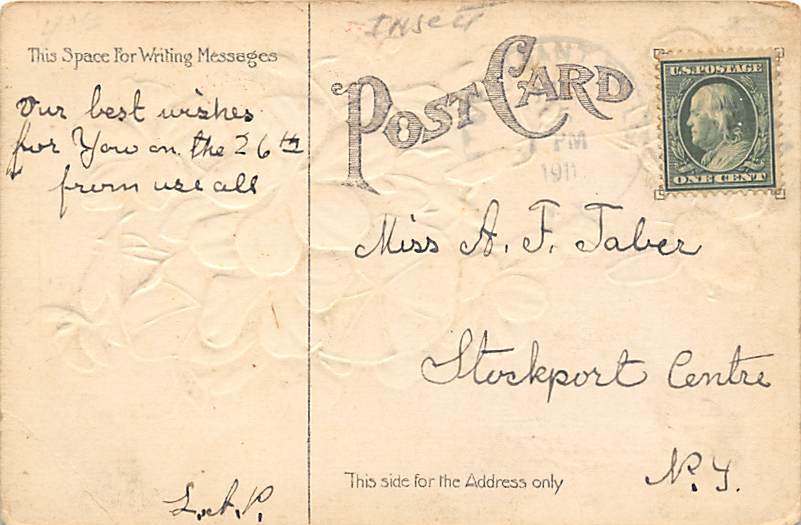 Insect
This Space For Writing Messages
POST CARD
U.S. POSTAGE
ONE CENT
PM
1911
our best wishes
for You on the 26th
from use all
Miss A. F. Taber
Stockport Centre
N. Y.
This side for the Address only
L.A.P.